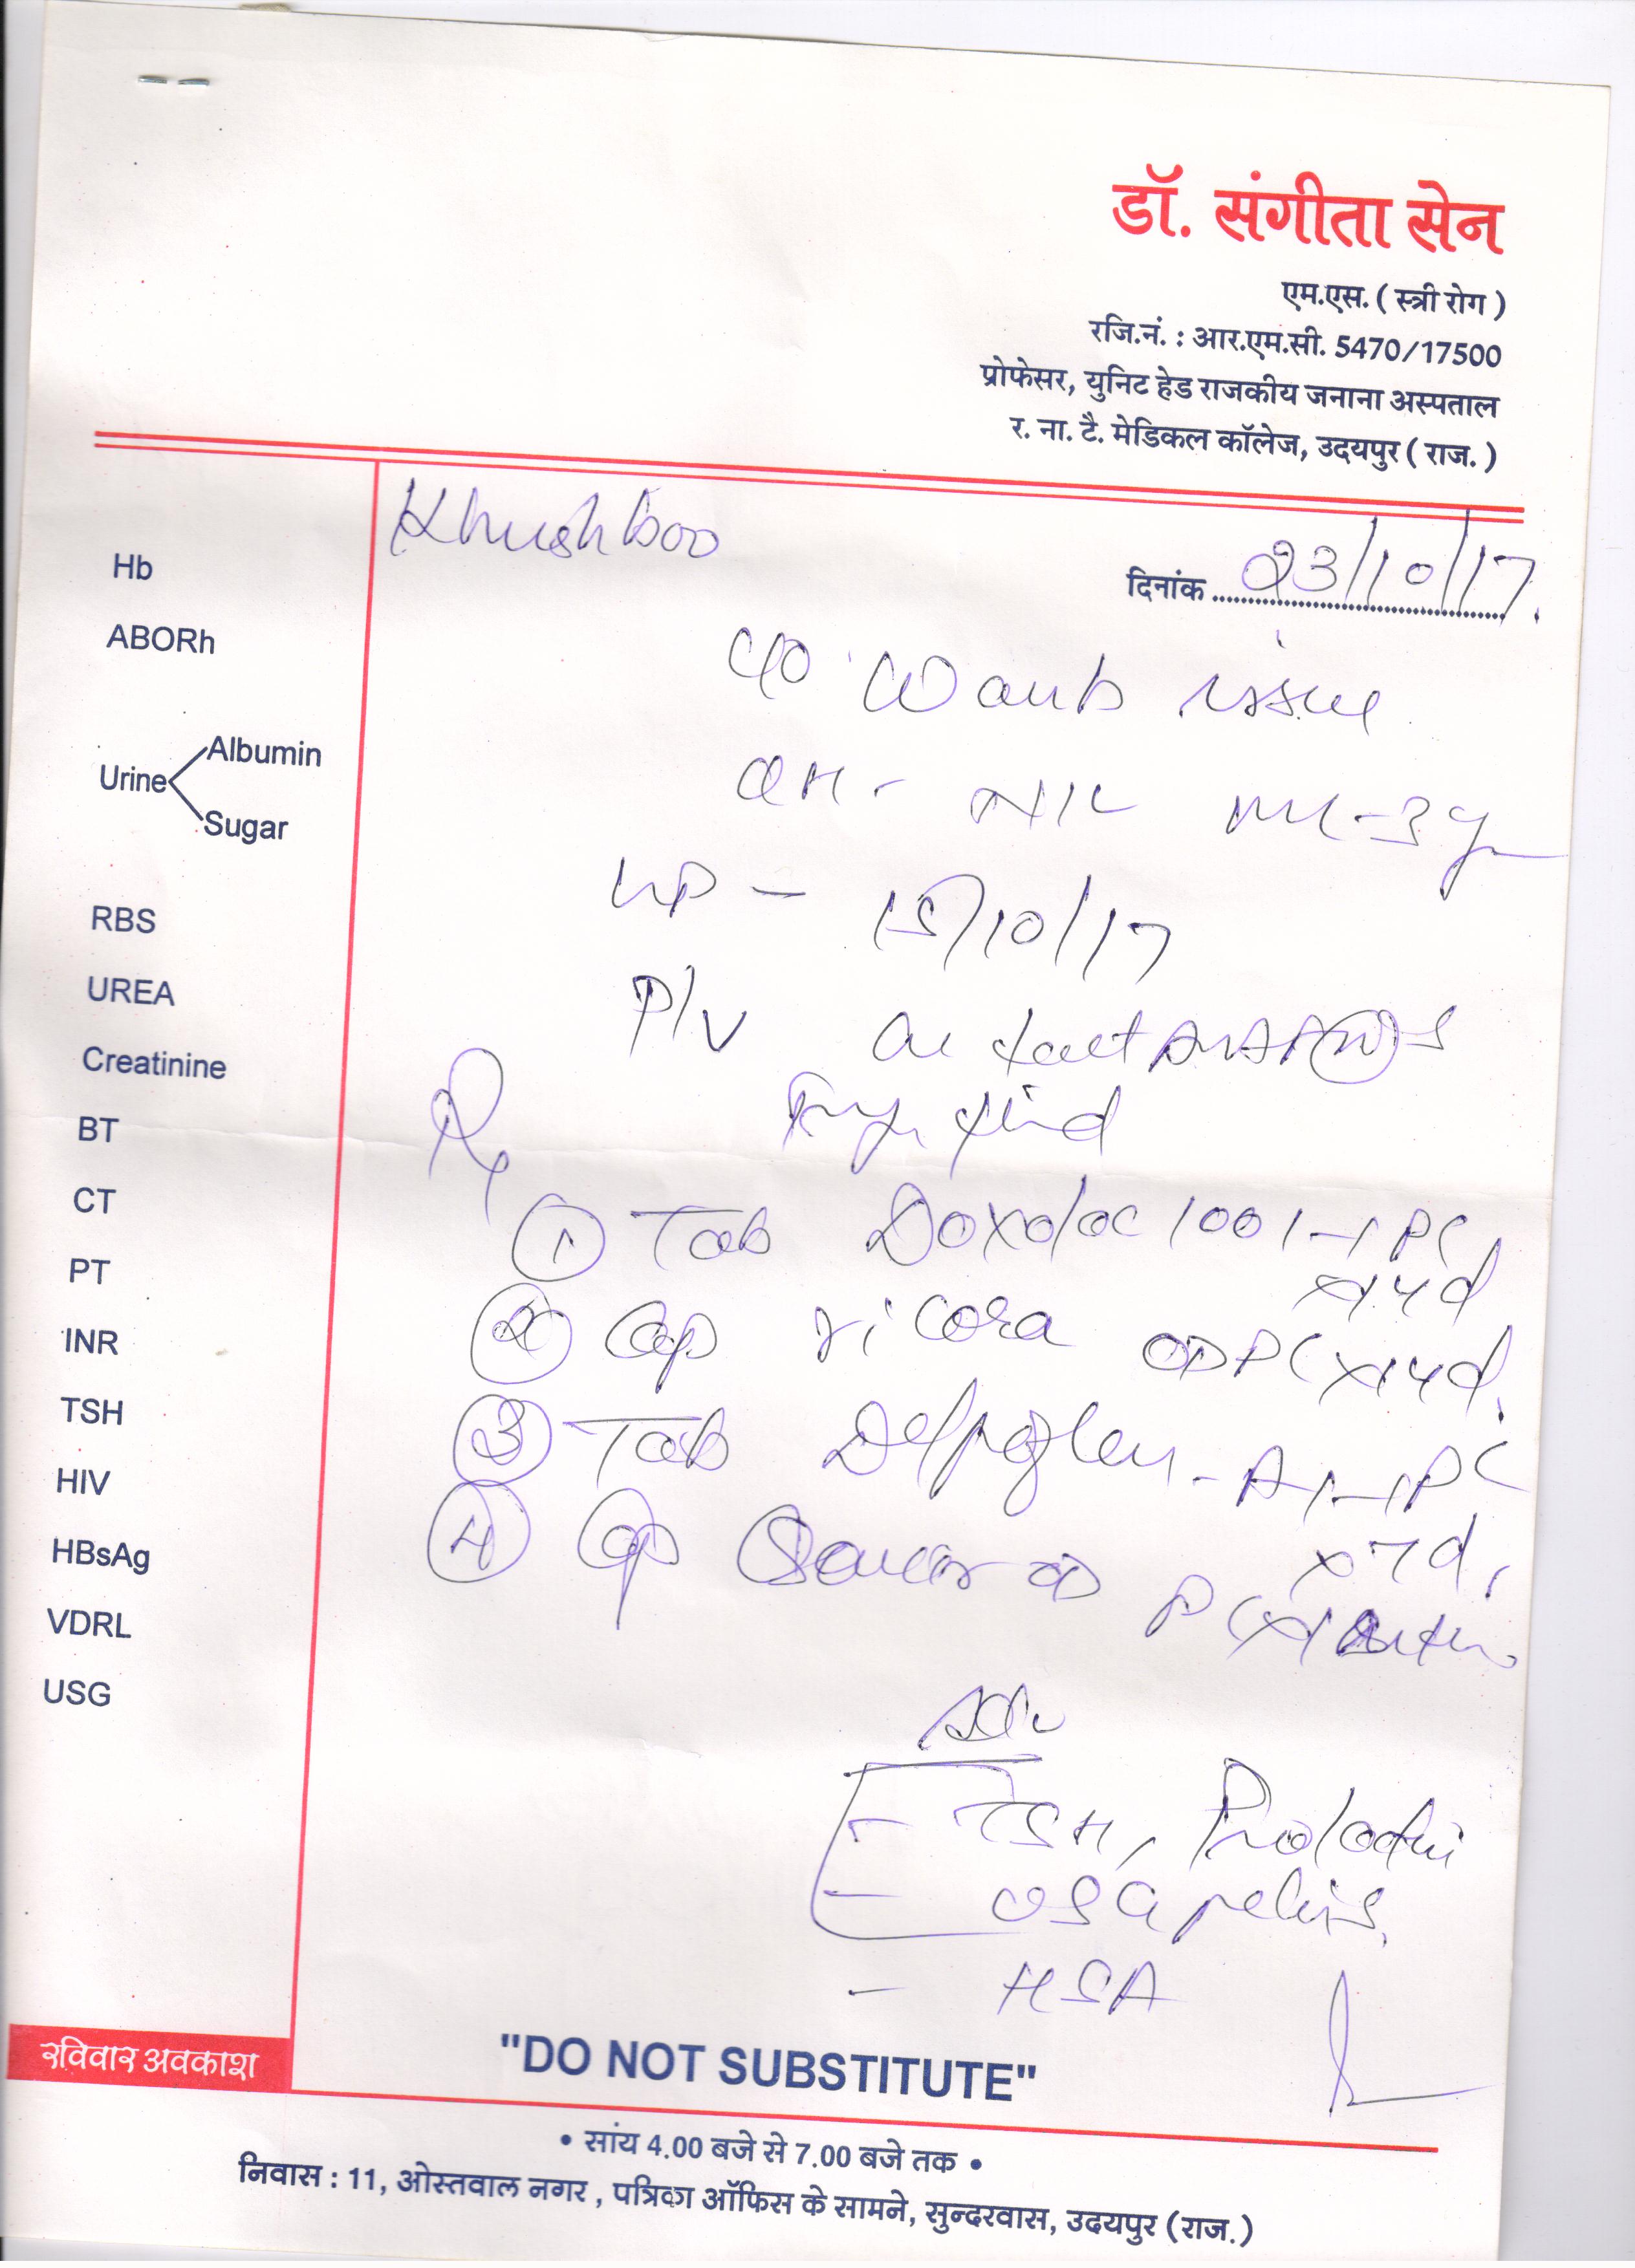 डॉ. संगीता सेन
एम.एस. ( स्त्री रोग )
रजि.नं. : आर.एम.सी. 5470/17500
प्रोफेसर, युनिट हेड राजकीय जनाना अस्पताल
र. ना. टै. मेडिकल कॉलेज, उदयपुर ( राज. )
Khushboo
दिनांक 23/10/17.
Hb
ABORh
Urine
Albumin
Sugar
RBS
UREA
Creatinine
BT
CT
PT
INR
TSH
HIV
HBsAg
VDRL
USG
C/O Wants issue
OH - Nil ML-3yr
LMP - 15/10/17
P/V
Rx
① Tab Doxolac 100 1-1 PC
x14d
② Cap ricora OD PC x14d.
③ Tab 1-1 PC
x7d,
④ Cap OD PC
Adv
- TSH, Prolactin
- USG pelvis.
- HSA
रविवार अवकाश
"DO NOT SUBSTITUTE"
• सांय 4.00 बजे से 7.00 बजे तक •
निवास : 11, ओस्तवाल नगर , पत्रिका ऑफिस के सामने, सुन्दरवास, उदयपुर ( राज. )